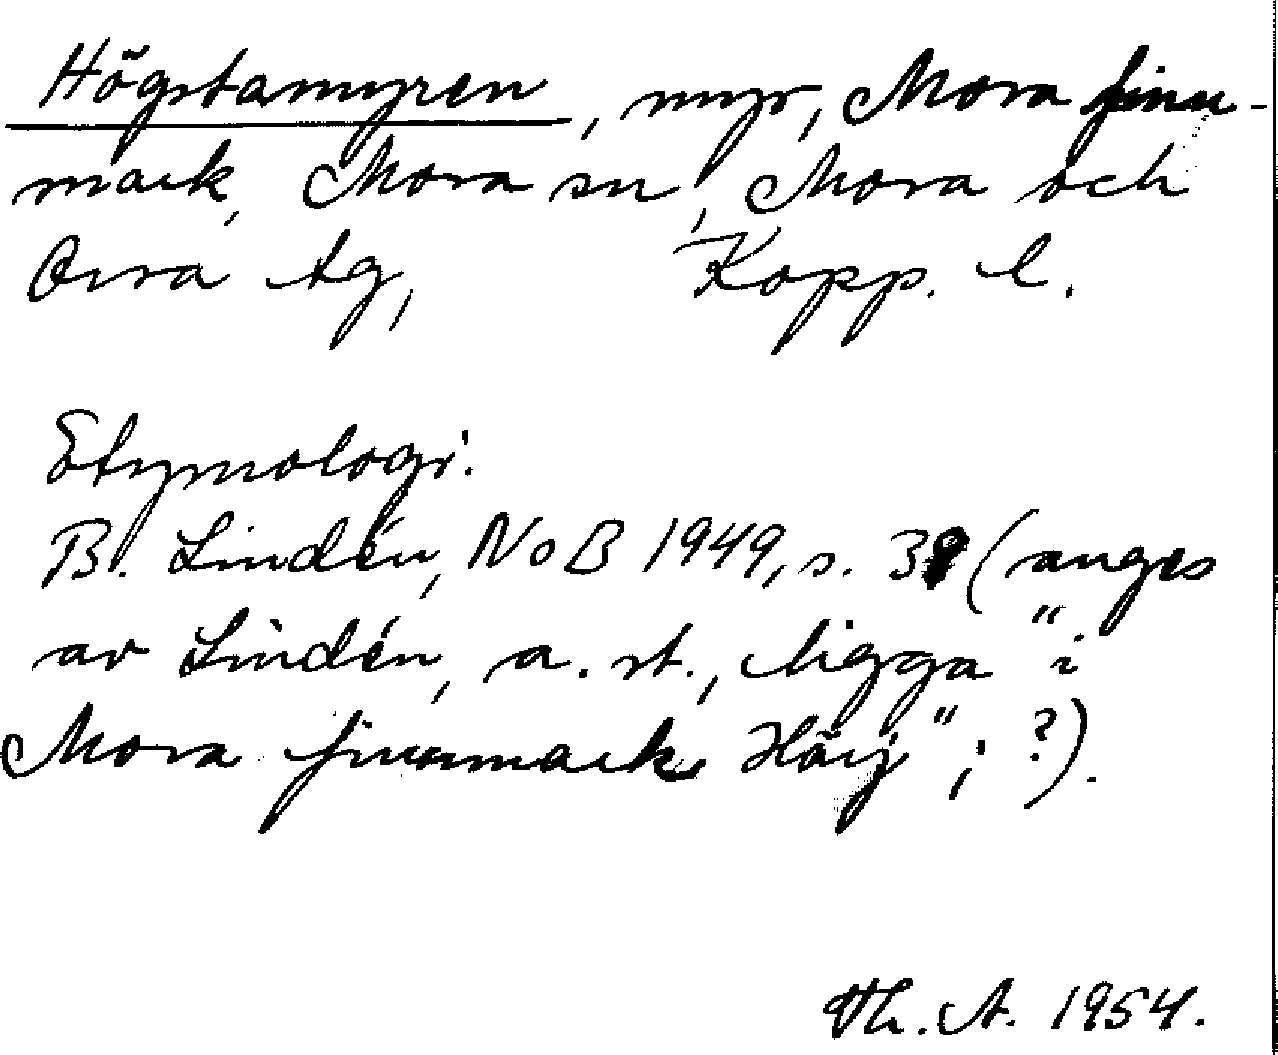 Högstamyren, myr, Mora finn-
mark, Mora sn, Mora och
Orsa tg, Kopp. l.
Etymologi:
B. Lindén, NoB 1949, s. (anges
av Lindén, a. st., ligga "i
Mora finnmark Härj"; ?).
Th. A. 1954.